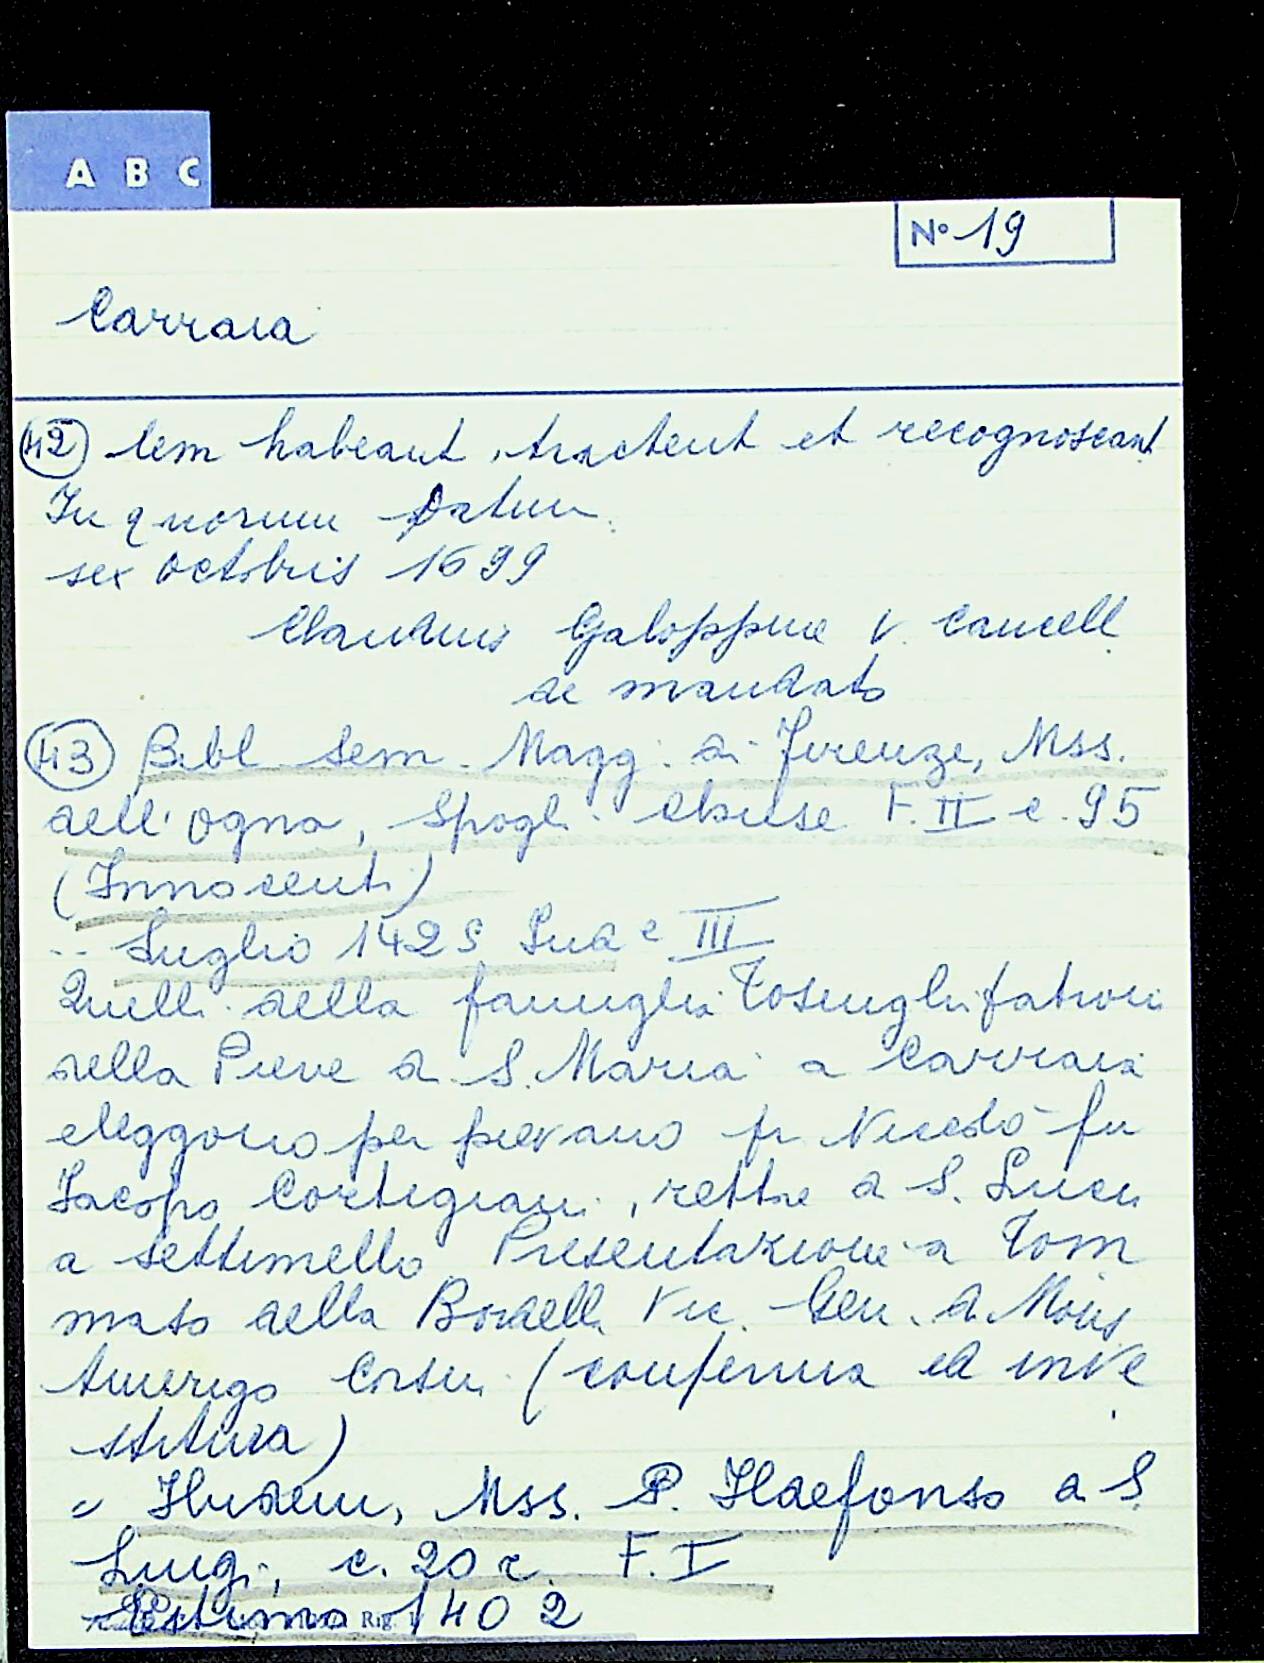 A B C
N° 19
Carraia
42 lem habeant, tractent et recognoscant
In quorum Datum
sex octobris 1699
Claudius Galoppine V. Cancell.
de mandato
43 Bibl. Sem. Magg. di Firenze, Mss.
dell'Ogna, Spogli Chiese F. II c. 95
(Innocenti)
.. Luglio 1425 Ind e III
Quelli della famiglia Tosinghi patroni
della Pieve di S. Maria a Carraia
eleggono per pievano fr Niccolò fu
Iacopo Cortigiani, rettre di S. Lucia
a Settimello Presentazione a Tom
maso della Bordella Vic. Gen. di Mons
Amerigo Corsini (conferma ed inve
stitura)
" Ibidem, Mss. P. Ildefonso di S.
Luigi, c. 20 r. F. I
Estimo 1402